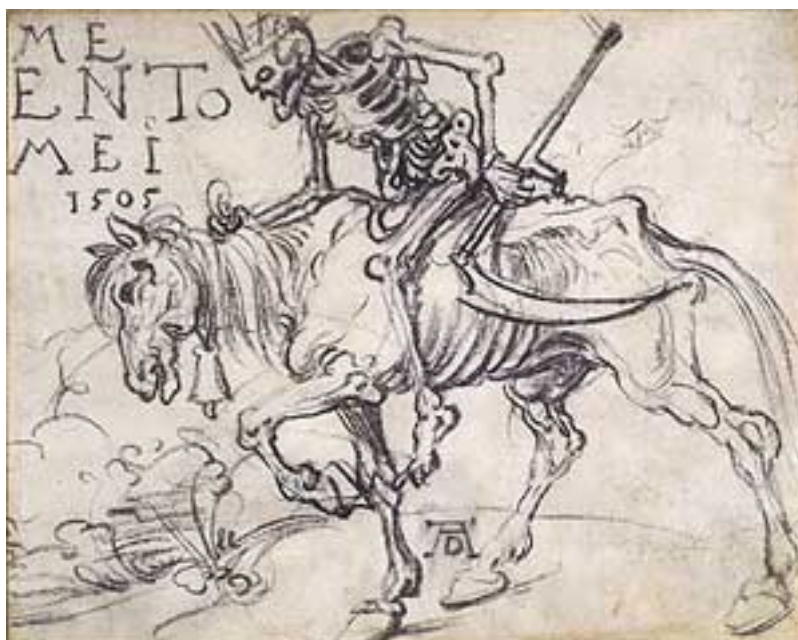 ME
EN.To
MEİ
1505
AD